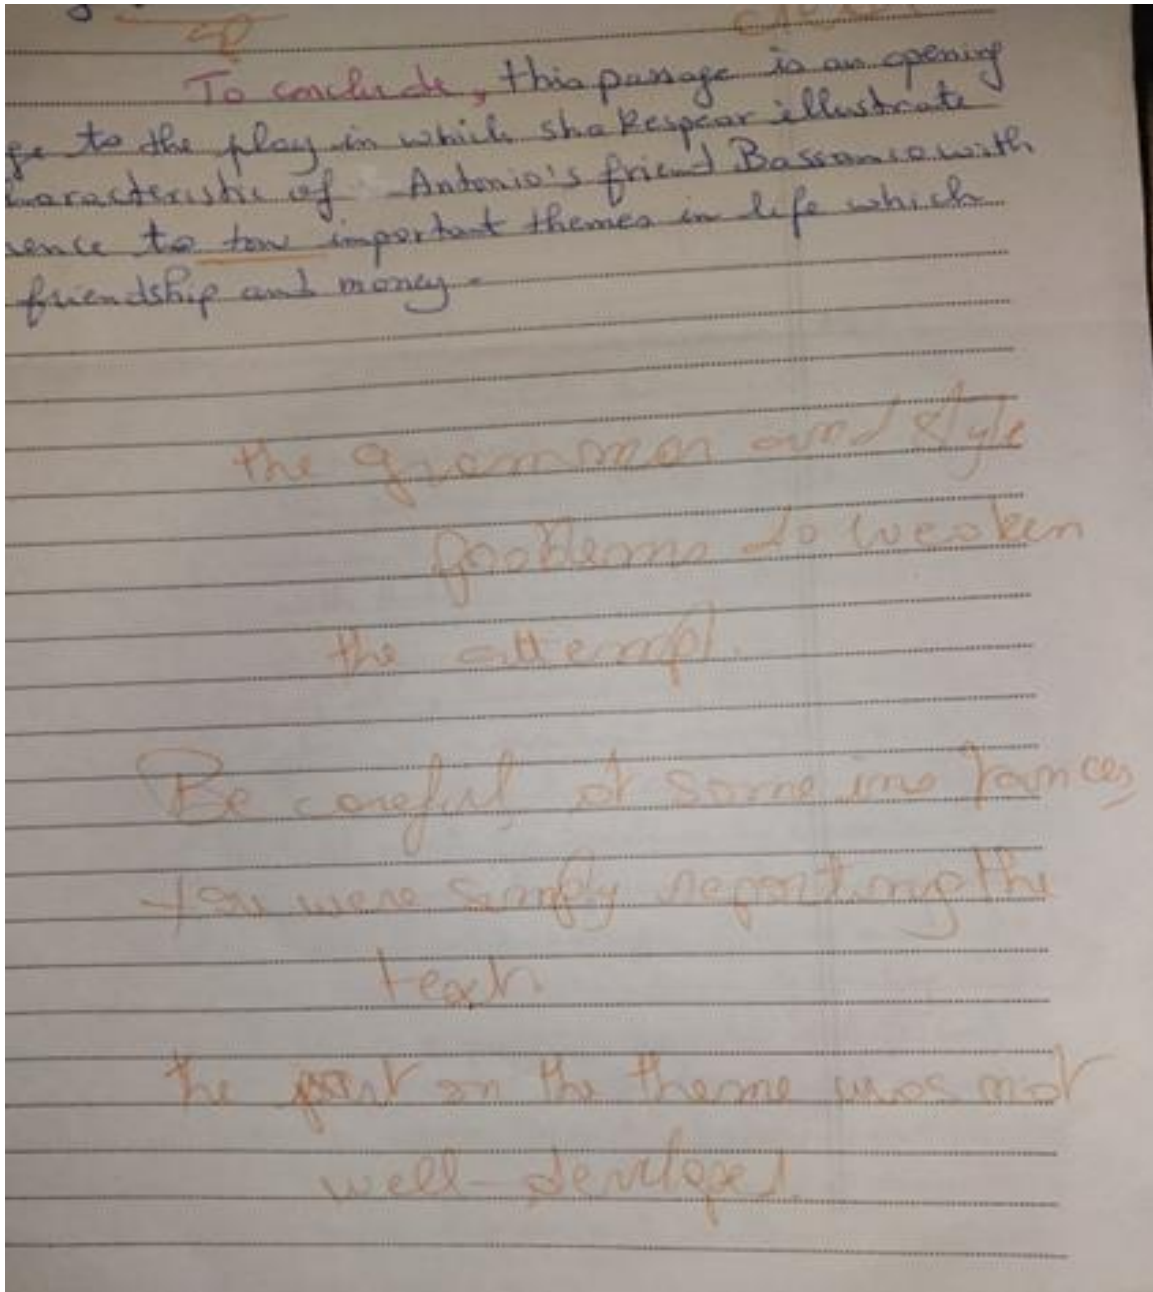 To conclude, this passage is an opening
ge to the play in which shakespear illustrate
haracteristic of Antonio's friend Bassanio with
rence to tow important themes in life which
friendship and money.
the grammar and style
problems do weaken
the attempt.
Be careful, at some instances,
you were simply reporting the
text
the part on the theme was not
well-developed.